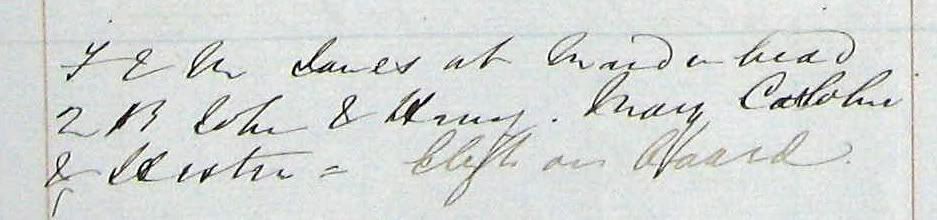 F & M James at Maidenhead
2 B John & Henry. Mary Catholic
& Hester = Clifton Board.